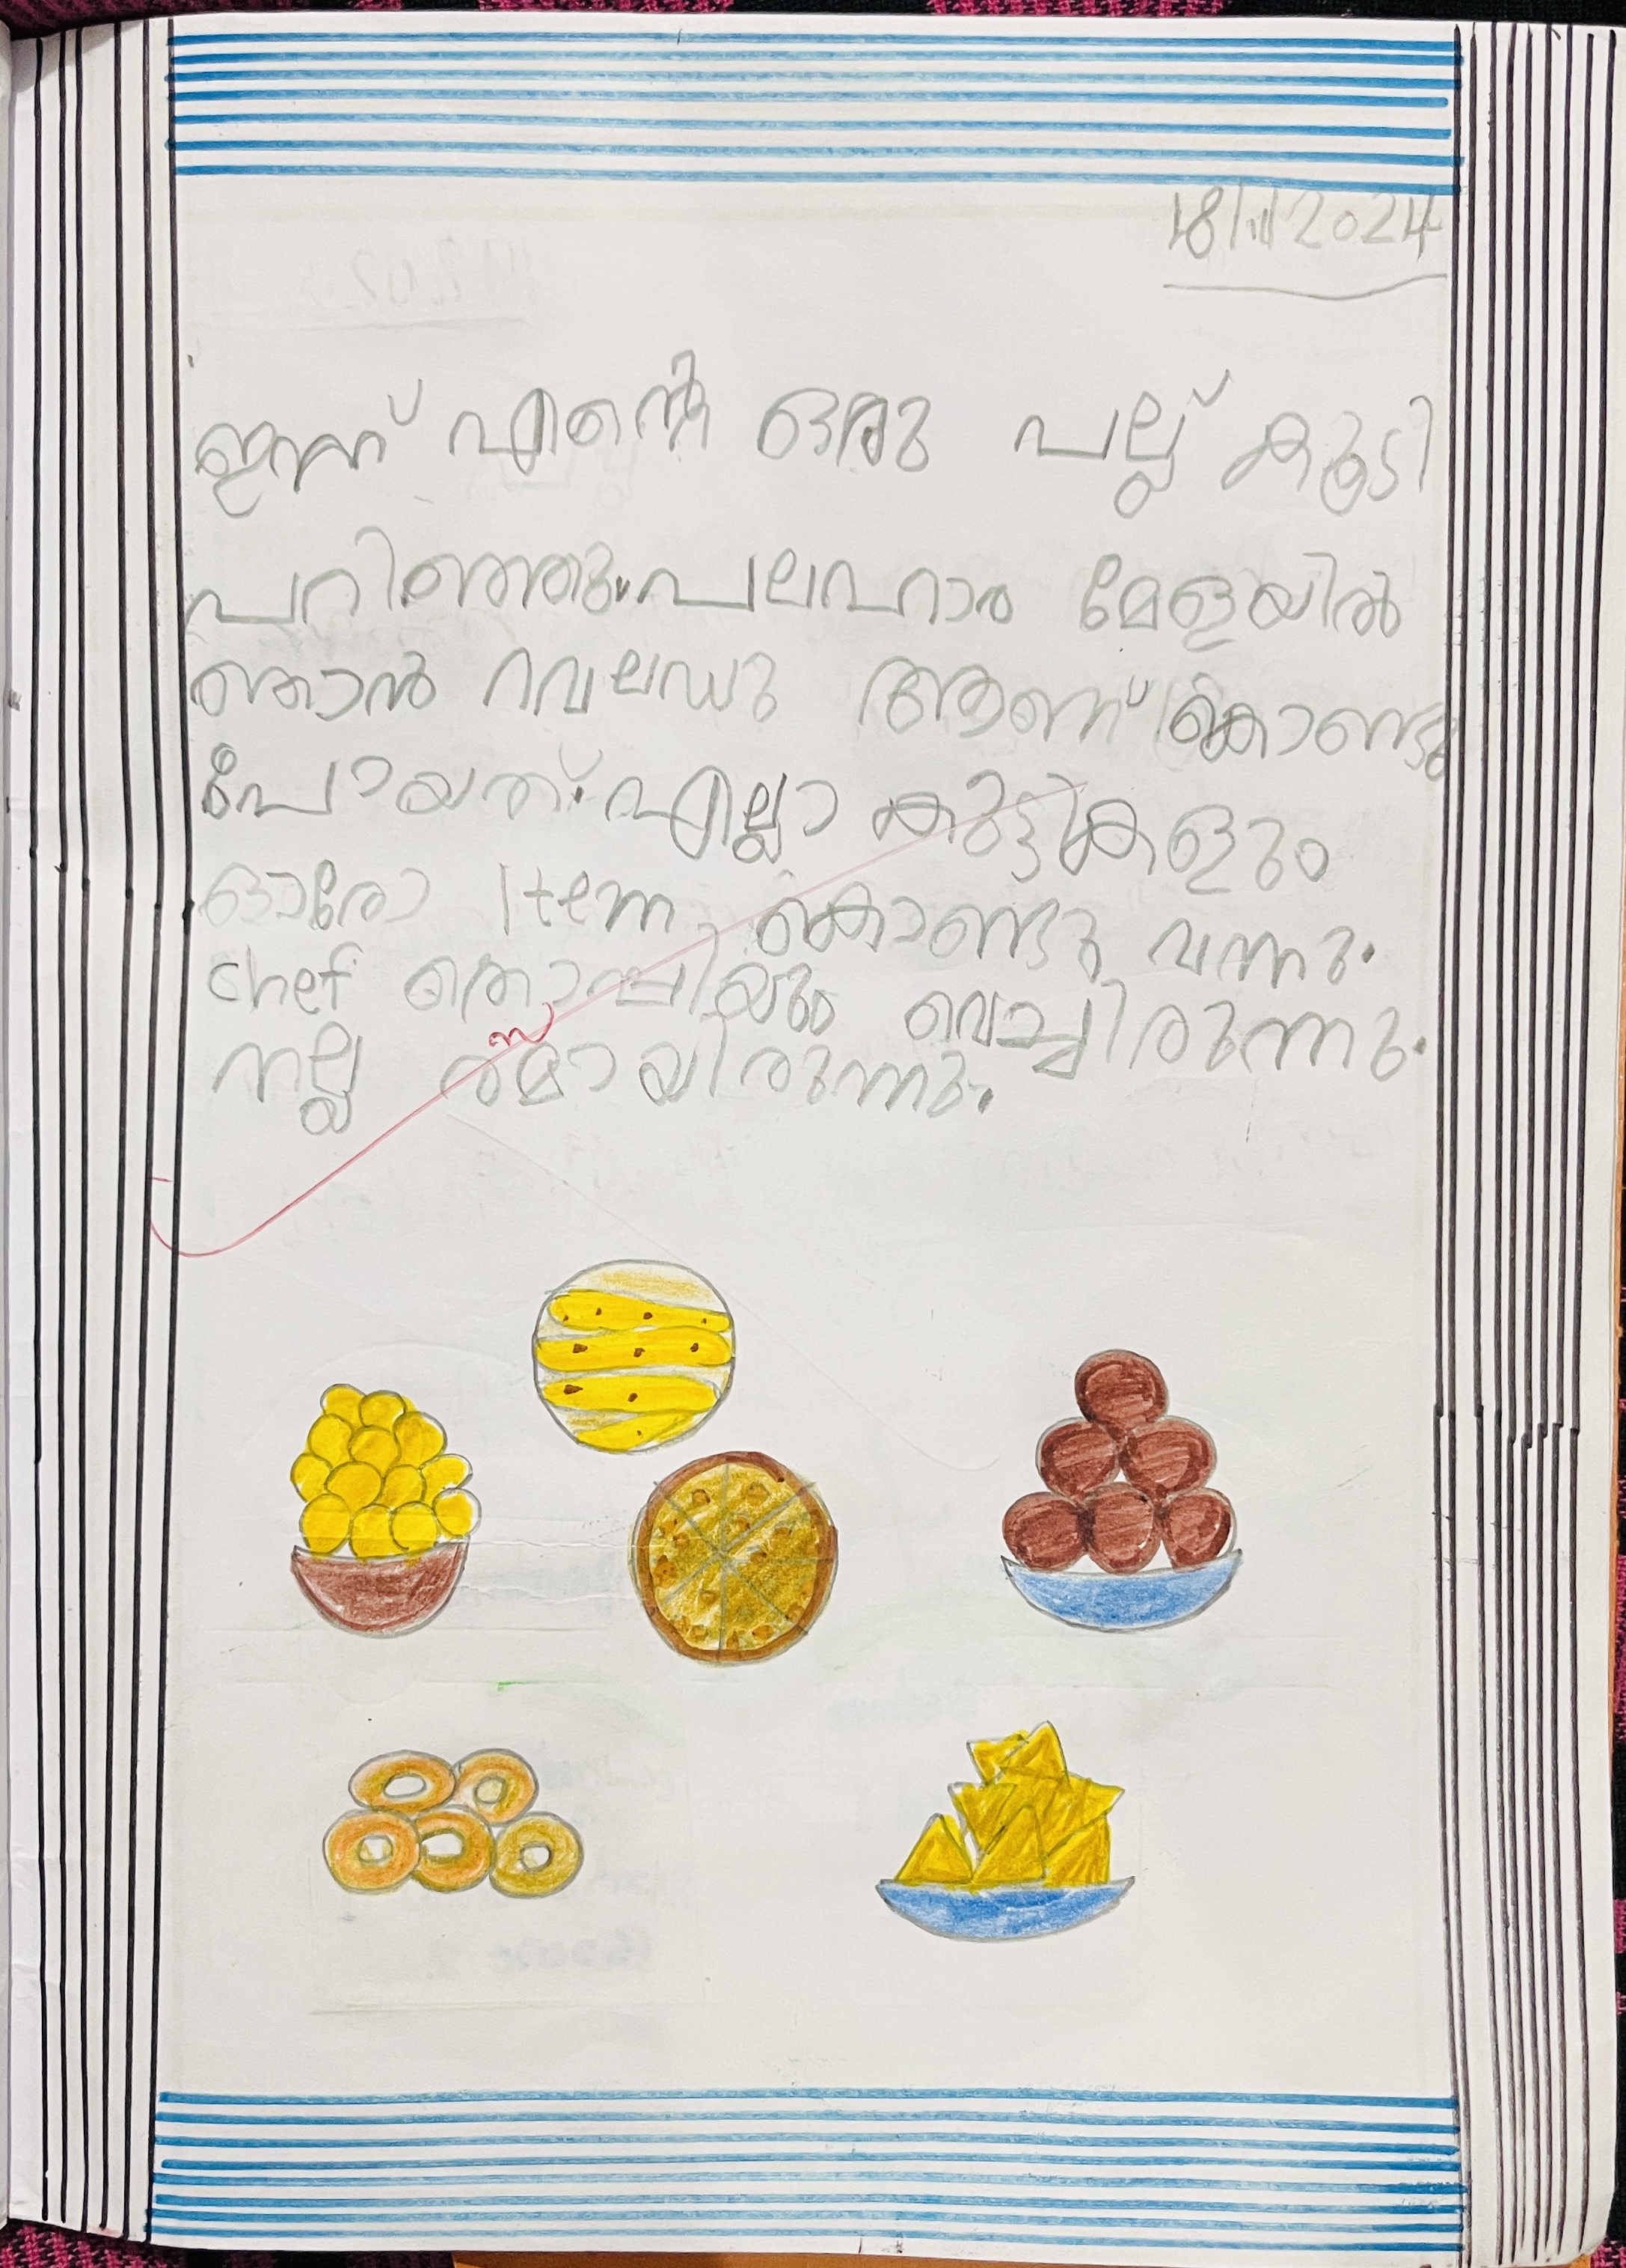 18/11/2024
ഇന്ന് എന്റെ ഒരു പല്ല് കൂടി
പറിഞ്ഞു. പലഹാര മേളയിൽ
ഞാൻ റവലഡു ആണ് കൊണ്ടു
പോയത്. എല്ലാ കുട്ടികളും
ഓരോ Item കൊണ്ടു വന്നു.
chef തൊപ്പിയും വെച്ചിരുന്നു.
നല്ല രസമായിരുന്നു.